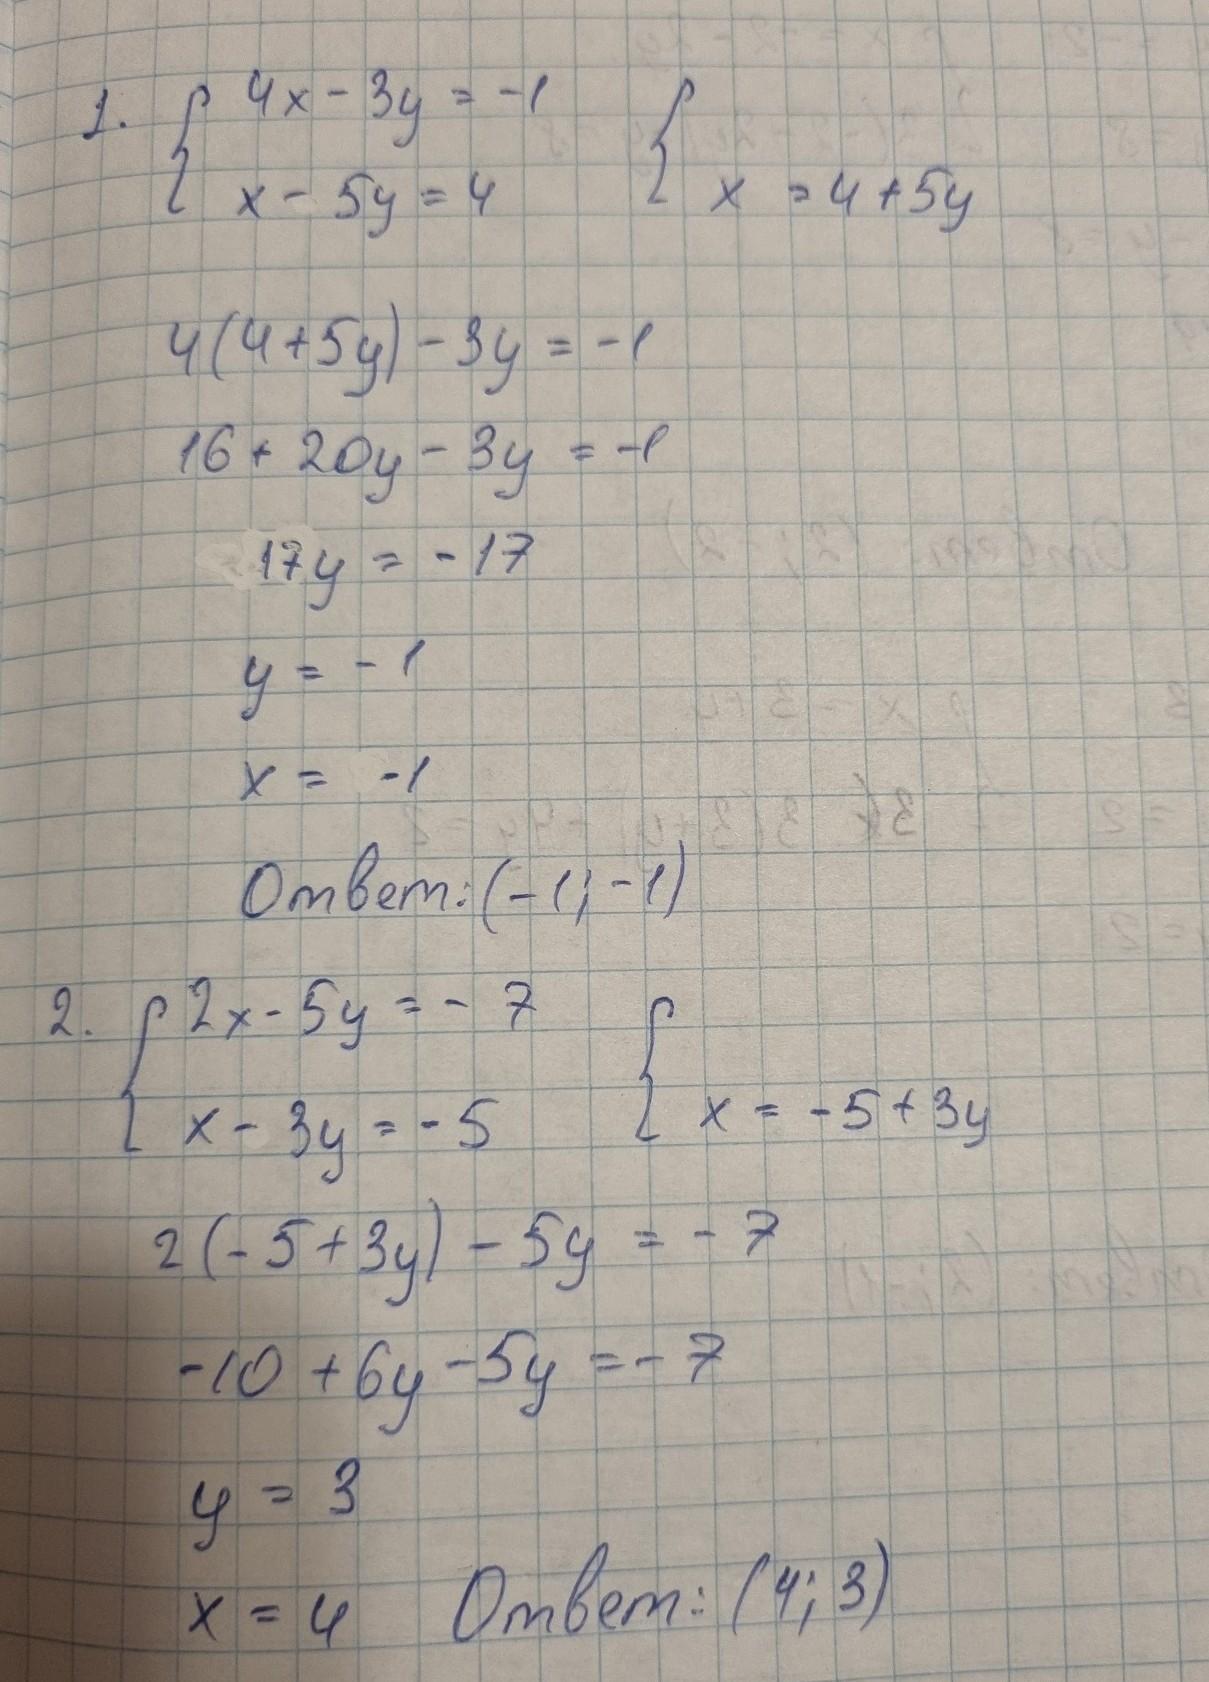 1. { 4x - 3y = -1 {
x - 5y = 4 x = 4 + 5y
4(4+5y) - 3y = -1
16 + 20y - 3y = -1
17y = -17
y = -1
x = -1
Ответ: (-1; -1)
2. { 2x - 5y = -7 {
x - 3y = -5 x = -5 + 3y
2(-5+3y) - 5y = -7
-10 + 6y - 5y = -7
y = 3
x = 4 Ответ: (4; 3)